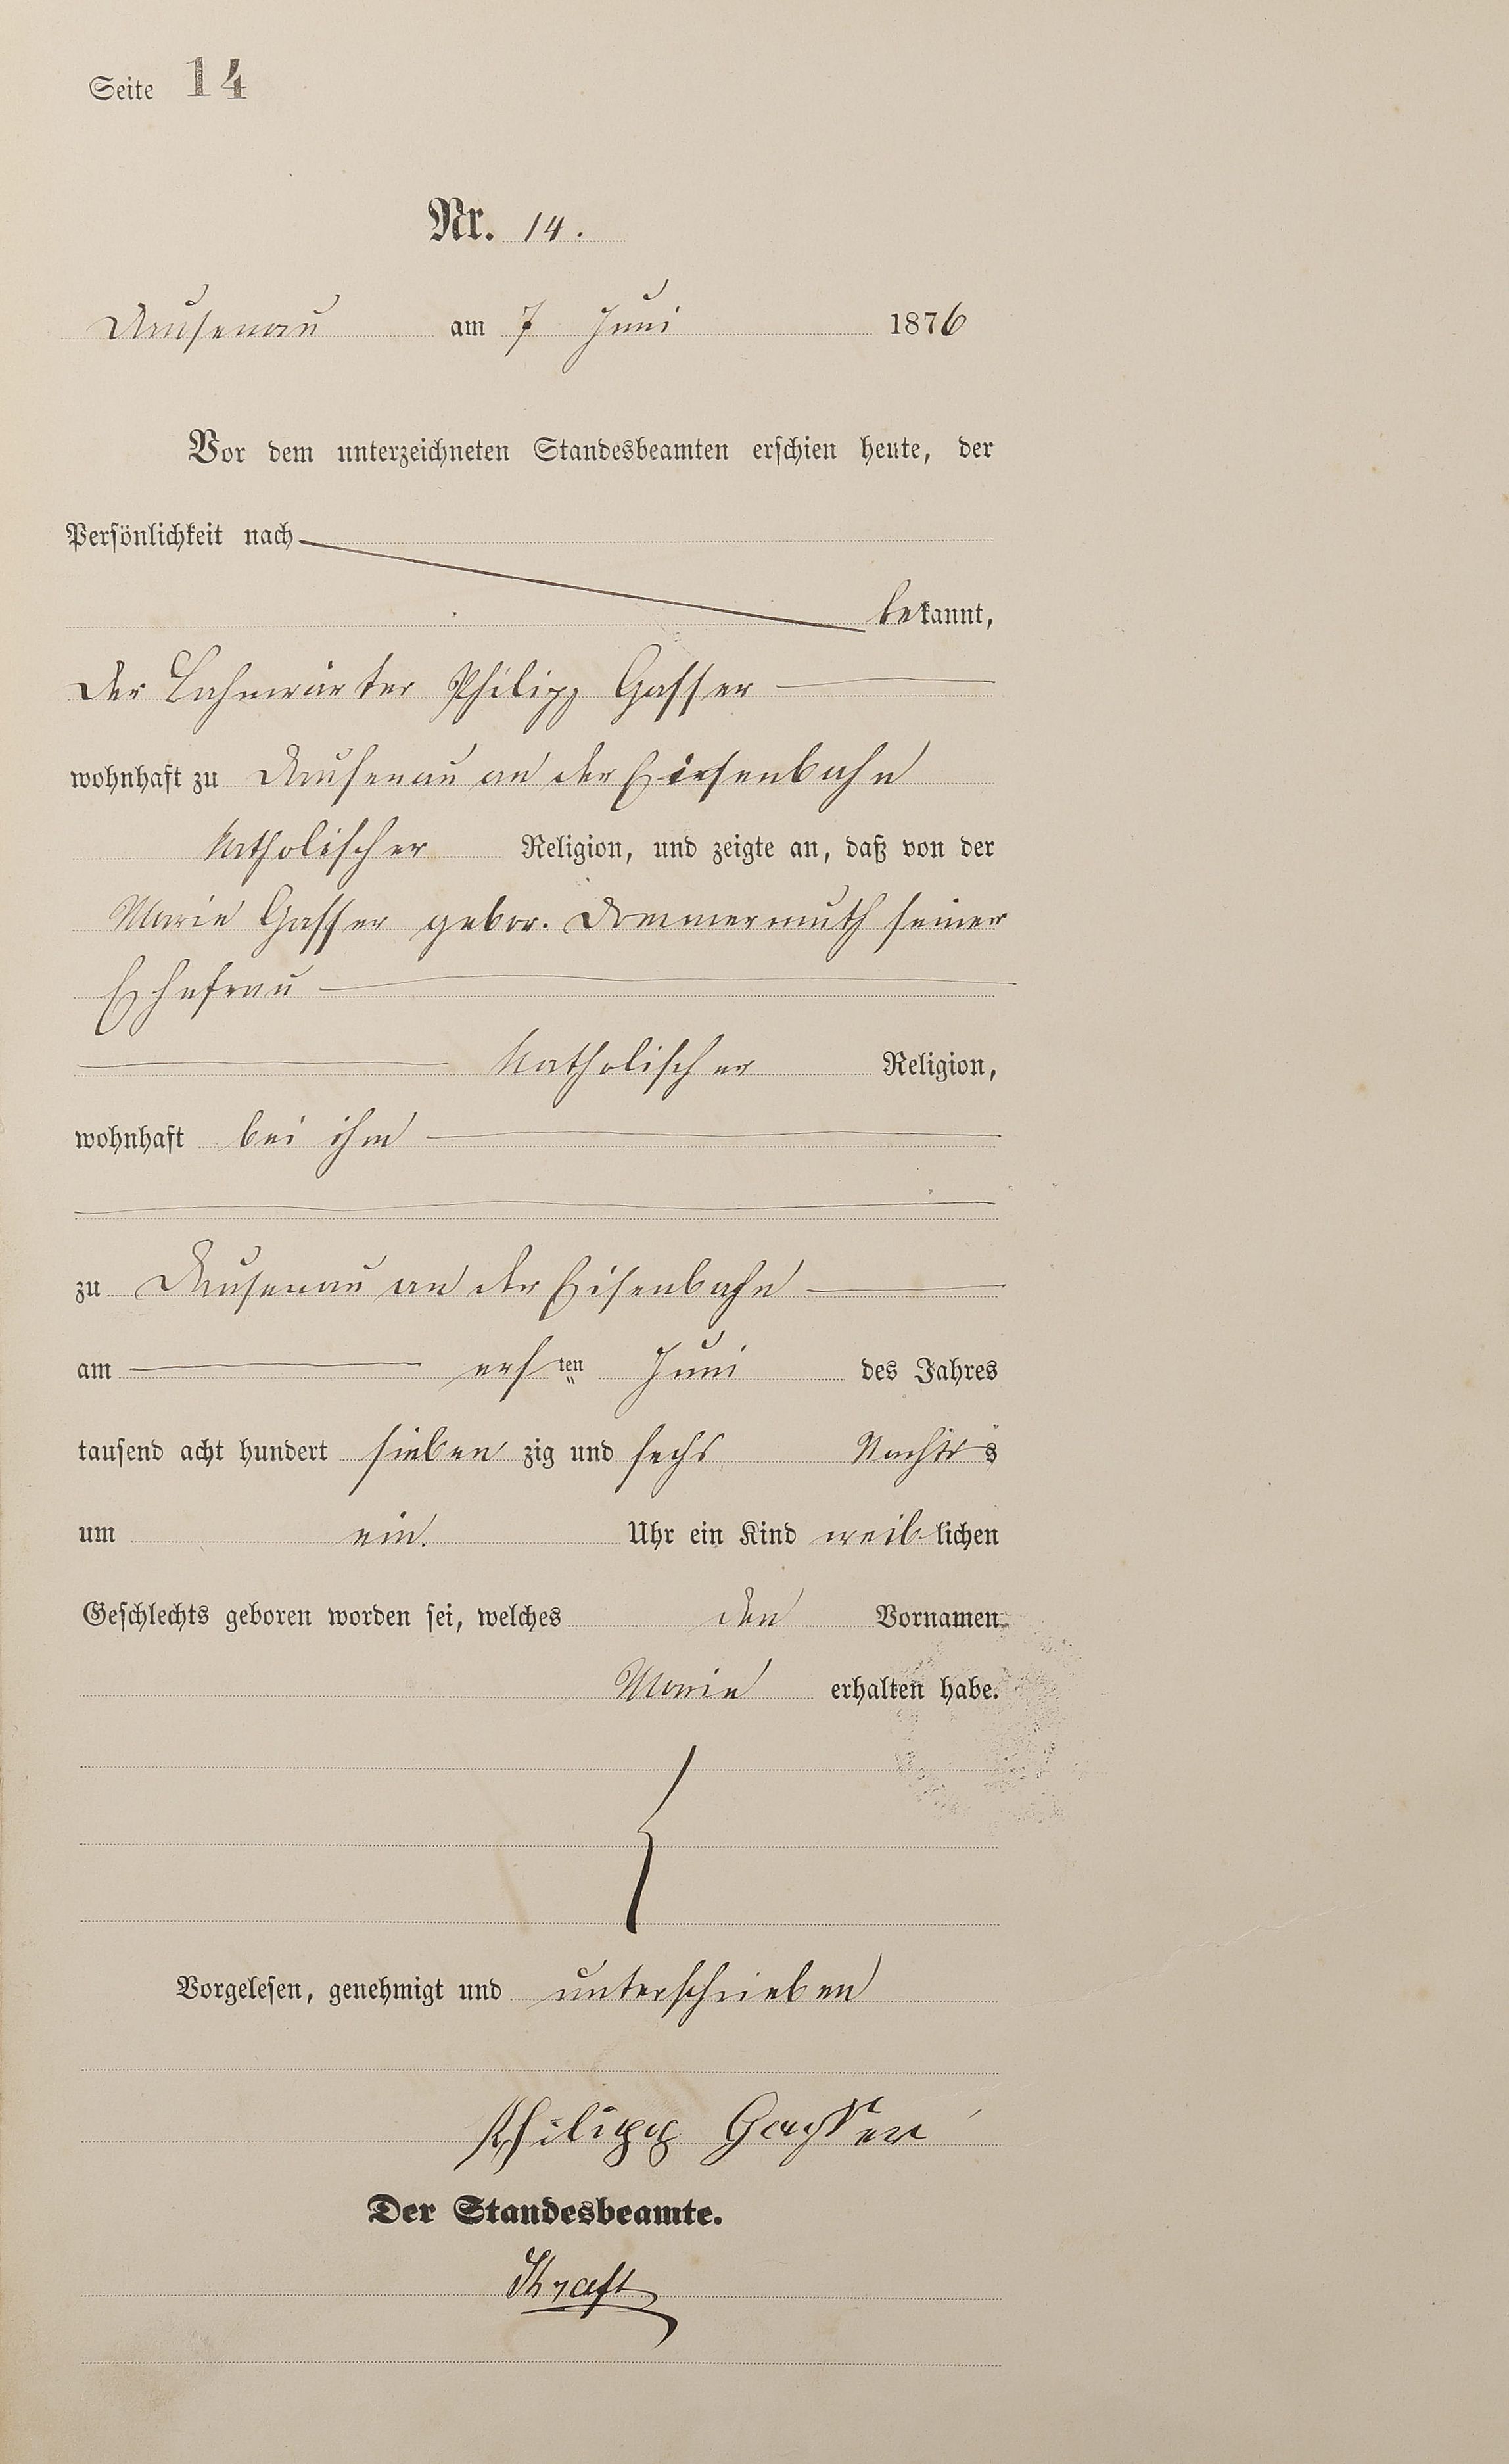 Seite 14
Nr. 14.
Dausenau am 7 Juni 1876
Vor dem unterzeichneten Standesbeamten erschien heute, der
Persönlichkeit nach
bekannt,
der Bahnwärter Philipp Gasser
wohnhaft zu Dausenau an der Eisenbahn
katholischer Religion, und zeigte an, daß von der
Marie Gasser gebor. Dommermuth seiner
Ehefrau
katholischer Religion,
wohnhaft bei ihm
zu Dausenau an der Eisenbahn
am ersten Juni des Jahres
tausend acht hundert sieben zig und sechs Nachts
um ein. Uhr ein Kind weiblichen
Geschlechts geboren worden sei, welches den Vornamen
Marie erhalten habe.
Vorgelesen, genehmigt und unterschrieben
Philipp Gasser
Der Standesbeamte.
Kraft